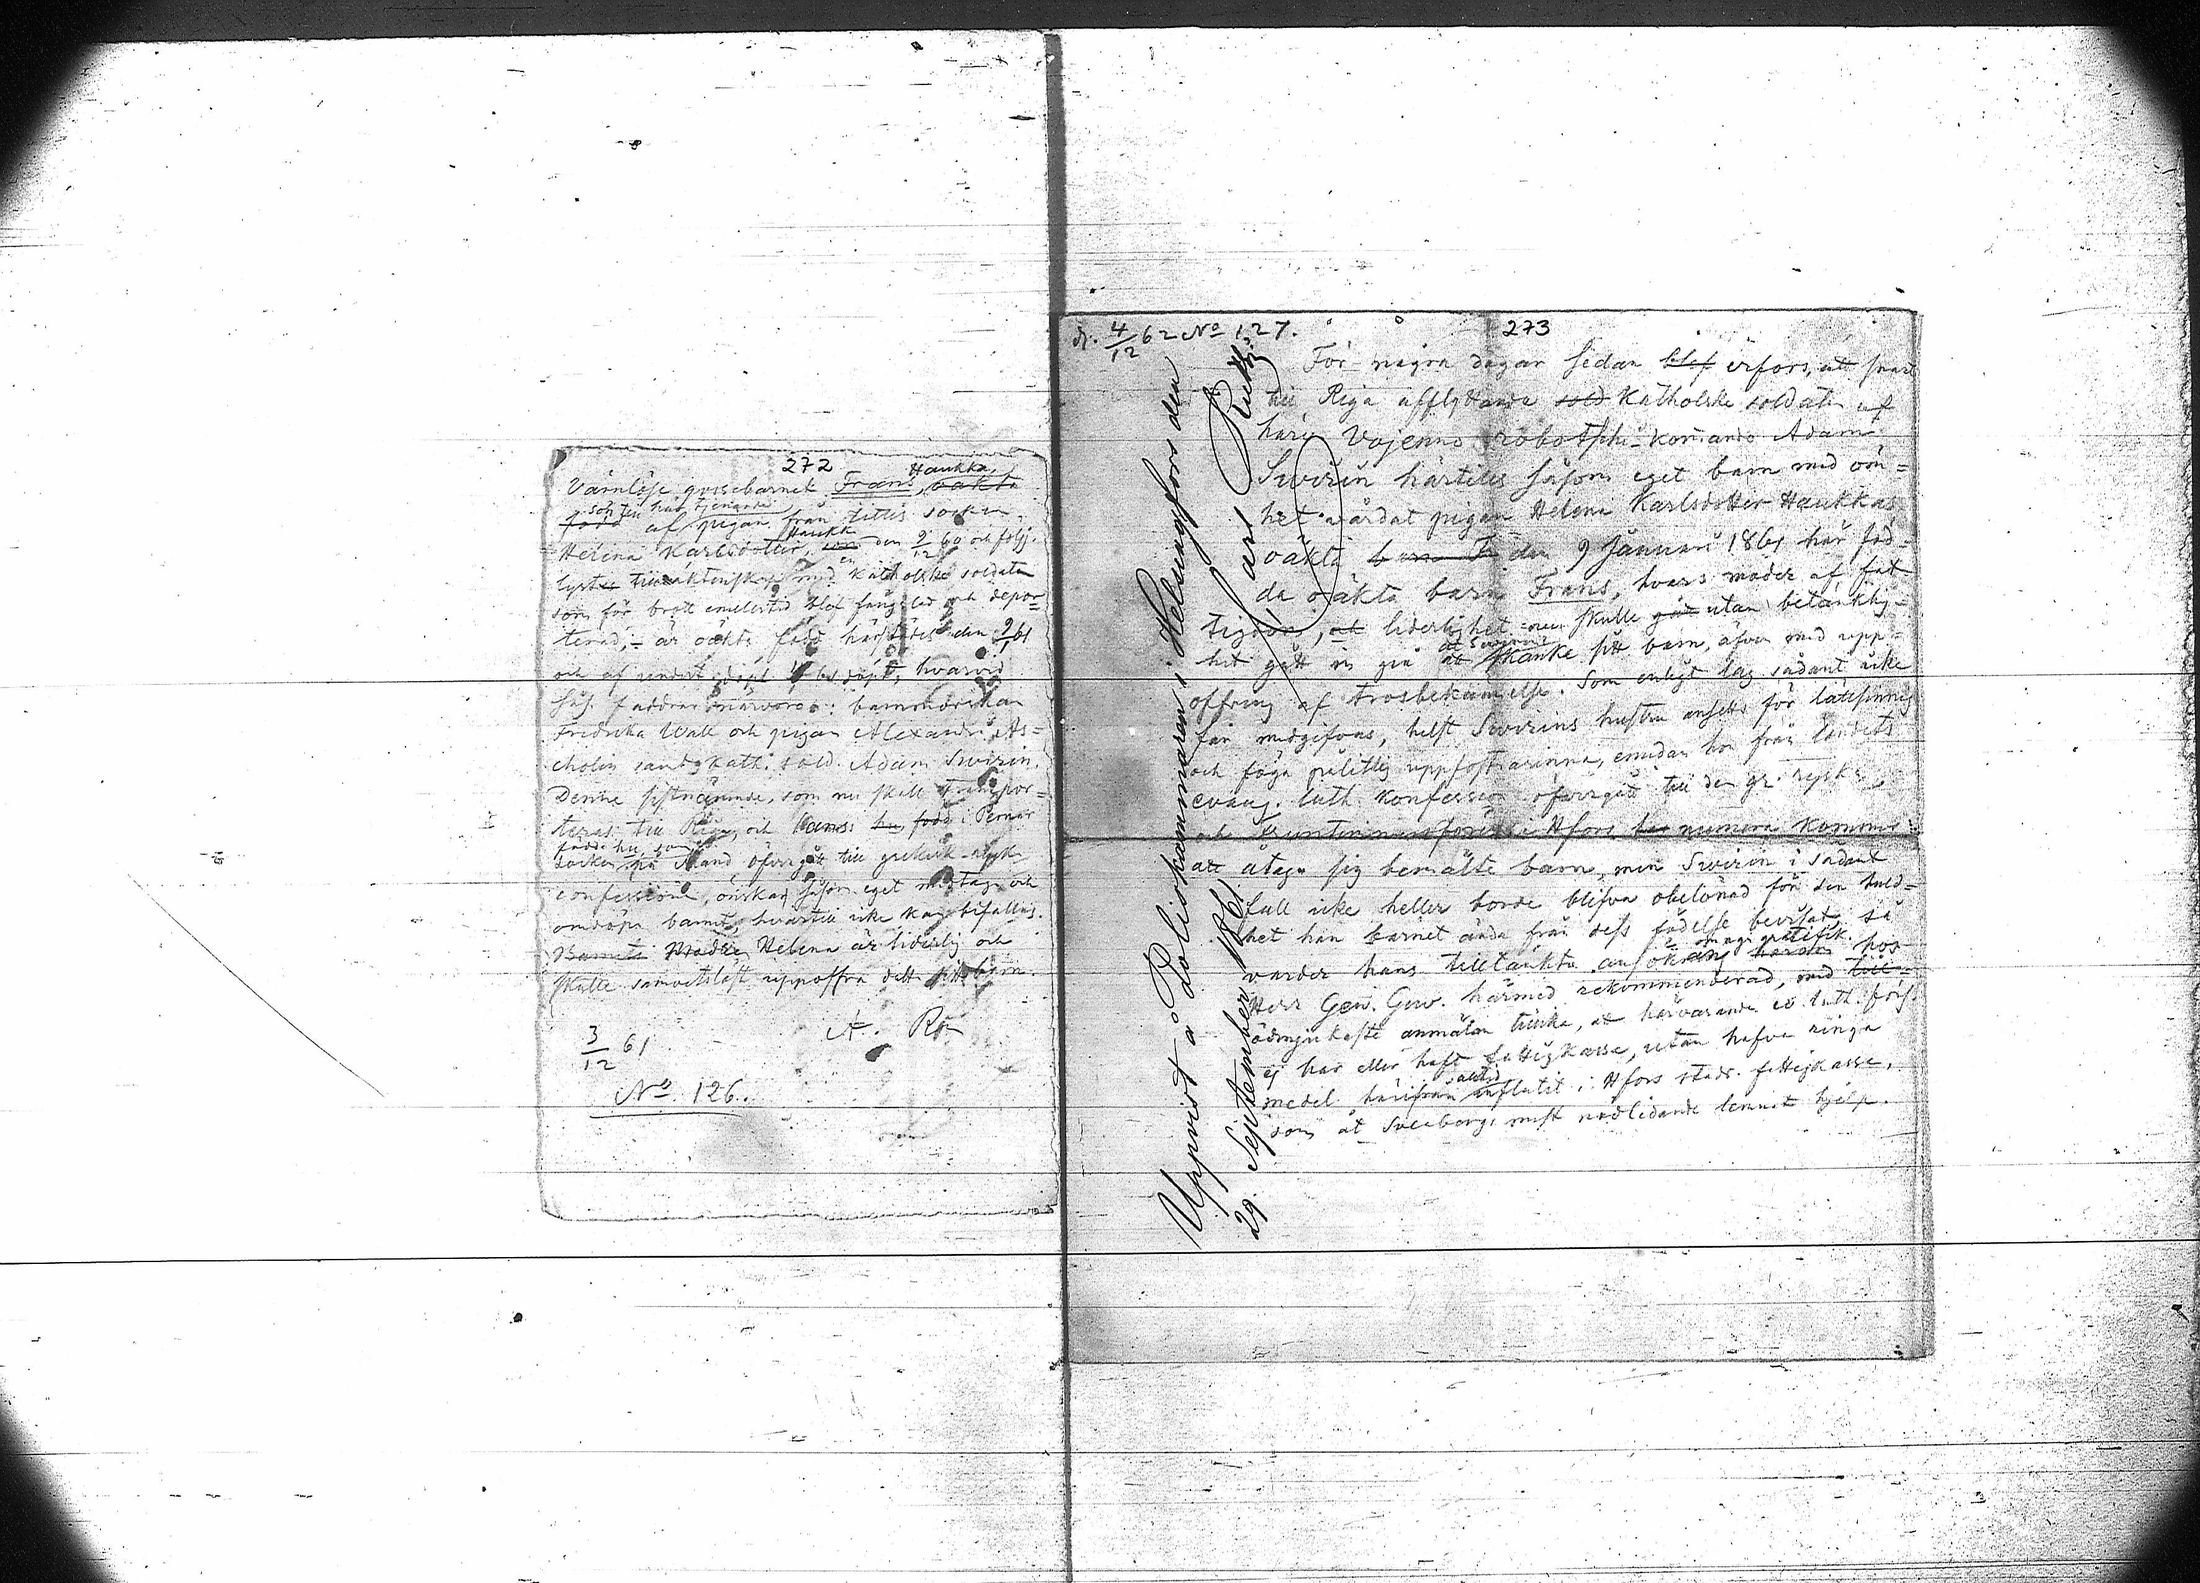 272
Värnlöse gossebarnet Frans Haukka, oäkta
som här tjenande
född af pigan från Ittis socken,
Helena Karlsdotter Haukk den 9/12 60 och följ.
med en Katholske soldaten
som för brott emellertid blef fängslad och depor=
terad, är oäkta född härstädes den 9/1 61
och af undert. döpt, hvarvid
såsom faddrar närvoro: barnmorskan
Fredrika Wall och pigan Alexandra As=
cholin samt kath. sold. Adam Swirin.
Denne sistnämnde, som nu skall transpor=
teras till Riga, och hans hu född i Pernar
född hu som
socken på Åland öfvergått till grekisk-ryska
confessionen, önskar såsom eget mottaga och
omdöpa barnet, hvartill icke kan bifallas.
Barnets Moder Helena är liderlig och
skulle samvetslöst uppoffra detta sitt barn.
3/12 61
A. Rn
No 126.
d. 4/12 62 No 127.
273
För några dagar sedan blef erfors, att snart
till Riga afflyttande sold Katholske soldaten af
härv. Vojenno robotschi-komando Adam
Swirin härtills såsom eget barn med öm=
het vårdat pigan Helena Karlsdotter Haukkas
oäkta den 9 Januari 1861 här föd=
da oäkta barn Frans, hvars moder af fat=
tigdom, och liderlighet nu skulle gå utan betänklig=
het gått in på att Swirin
att skänka sitt barn, äfven med upp=
offring af trosbekännelse. Som enligt lag sådant icke
får medgifvas, helst Swirins hustru anses för lättsinnig
och föga pålitlig uppfostrarinna, emedan hon från landets
evang. luth. konfession öfvergått till den gr. ryska,
och Fruntimmersföreningen i Hfors numera kommer
att åtaga sig bemälte barn, men Swirin i sådant
fall icke heller borde blifva obelönad för den huld=
het han barnet ända från dess födelse bevisat, så
varder hans tilltänkta ansökning om gratifik. hos
Herr Gen. Guv. härmed rekommenderad, med till=
ödmjukaste anmälan tillika, att härvarande ev. luth. förs.
ej har eller haft fattigkassa, utan hafva ringa
medel härifrån alltid influtit i Hfors stads fattigkassa,
som åt Sveaborgs mest nödlidande lemnat hjelp.
Uppvist å Poliskammaren i Helsingfors den
29. September 1861.
Carl Ruth